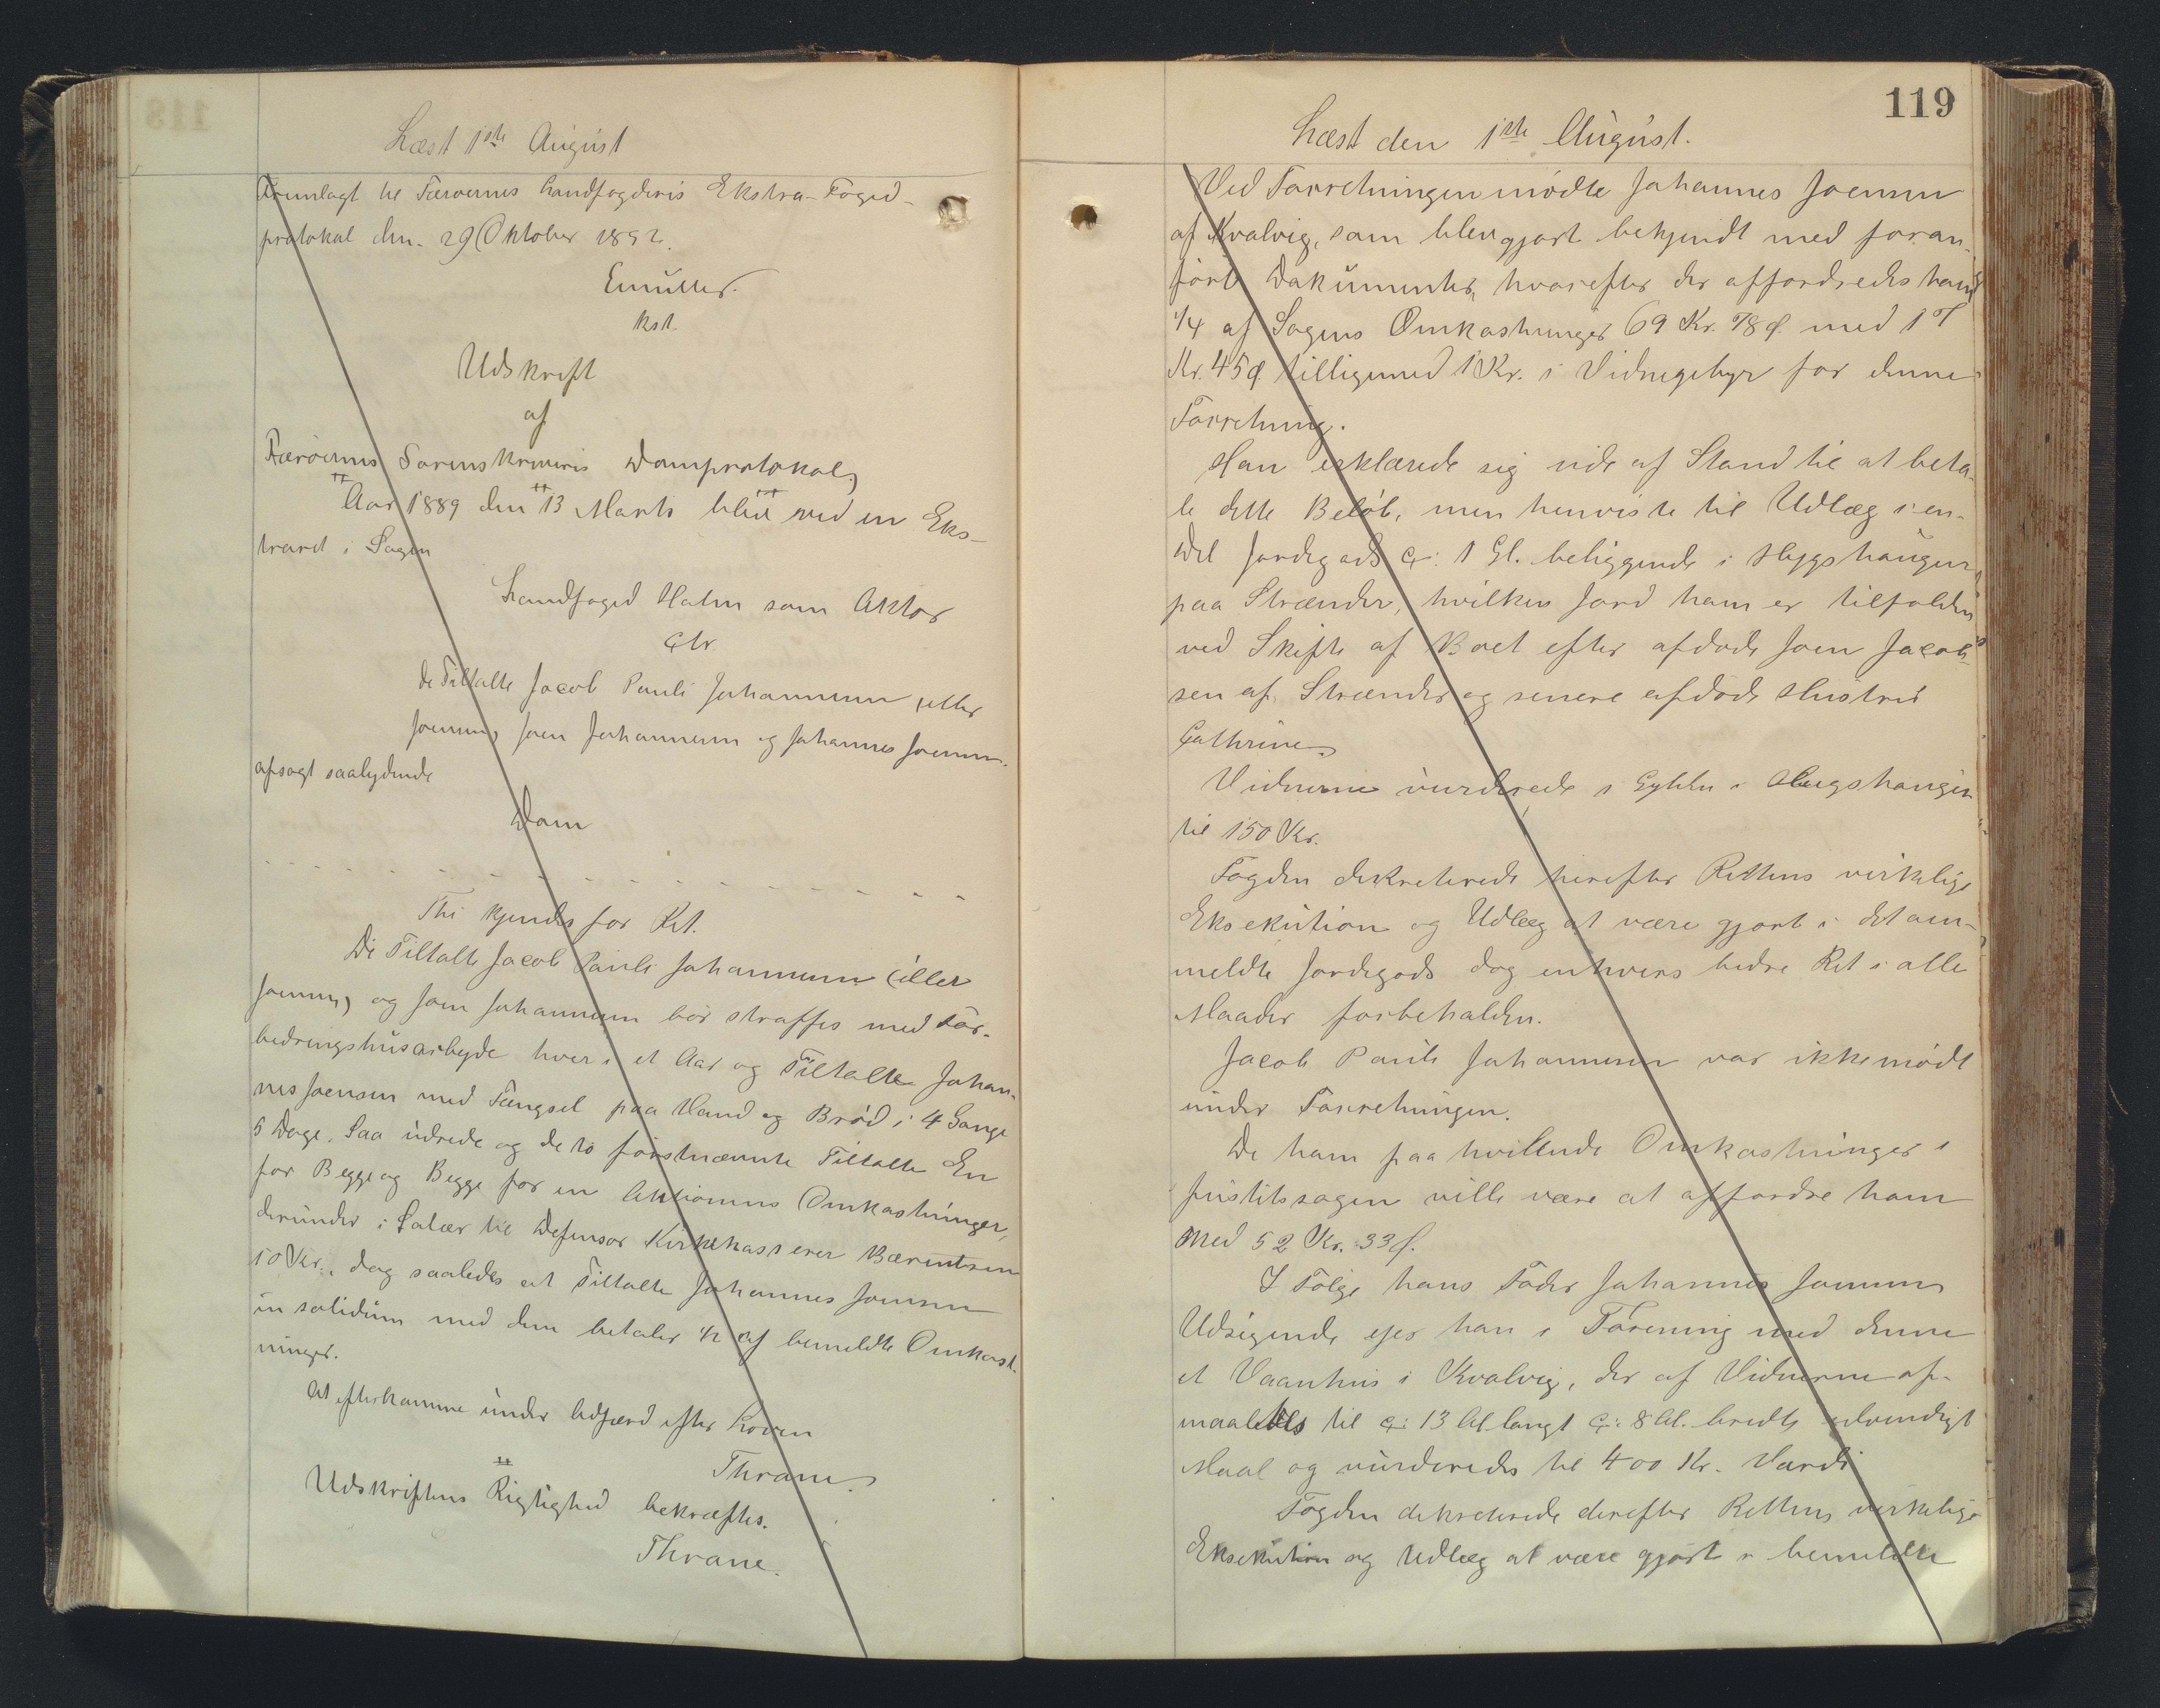 Læst 1ste August
Fremlagt til Færøernes Landfogderis Ekstra-Foged-
protokol den 29 Oktober 1892.
EMüller.
kst.
Udskrift
af
Færøernes Sorenskriveris Domprotokol,
Aar 1889 den 13 Marts blev ved en Eks-
traret i Sagen
Landfoged Halm som Aktor
ctr.
de Tiltalte Jacob Pauli Johannesen eller
Joensen, Joen Johannesen og Johannes Joensen.
afsagt saalydende
Dom
Thi kjendes for Ret.
De Tiltalte Jacob Pauli Johannesen (eller
Joensen) og Joen Johannesen bør straffes med For-
bedringshusarbejde hver i et Aar og Tiltalte Johan-
nes Joensen med Fængsel paa Vand og Brød i 4 Gange
5 Dage. Saa udrede og de to førstnævnte Tiltalte En
for Begge og Begge for en Aktionens Omkostninger,
derunder i Salær til Defensor Kirkekasserer Bærentsen
10 Kr., dog saaledes at Tiltalte Johannes Joensen
in solidum med dem betaler 1/2 af bemeldte Omkost-
ninger.
At efterkomme under Adfærd efter Loven
Thrane.
Udskriftens Rigtighed bekræftes.
Thrane.
119
Læst den 1ste August.
Ved Forretningen mødte Johannes Joensen
af Kvalvig, som blev gjort bekjendt med foran-
førte Dokumenter, hvorefter der affordredes ham
1/4 af Sagens Omkostninger 69 Kr. 78 Ø. med 17
Kr. 45 Ø. tilligemed 1 Kr. i Vidnegebyr for denne
Forretning.
Han erklærede sig ude af Stand til at beta-
le dette Beløb, men henviste til Udlæg i en
Del Jordegods c: 1 Gl. beliggende i Hygshaugen
paa Strænder, hvilken Jord ham er tilfalden
ved Skifte af Boet efter afdøde Joen Jacob-
sen af Strænder og senere afdøde Hustru
Cathrine.
Vidnerne vurderede 1 Gylden i Hugshaugen
til 150 Kr.
Fogden dekreterede herefter Rettens virkelige
Eksekution og Udlæg at være gjort i det om-
meldte Jordegods dog enhvers bedre Ret i alle
Maader forbeholden.
Jacob Pauli Johannesen var ikke mødt
under Forretningen.
De ham paahvillende Omkostninger i
Justitssagen ville være at affordre ham
med 52 Kr. 33 Ø.
I Følge hans Fader Johannes Joensens
Udsigende ejer han i Forening med denne
et Vaanhus i Kvalvig, der af Vidnerne op-
maaltes til c: 13 Al. langt c: 8 Al. bredt udvendigt
Maal og vurderedes til 400 Kr. Værdi
Fogden dekreterede derefter Rettens virkelige
Eksekution og Udlæg at være gjort i bemeldte